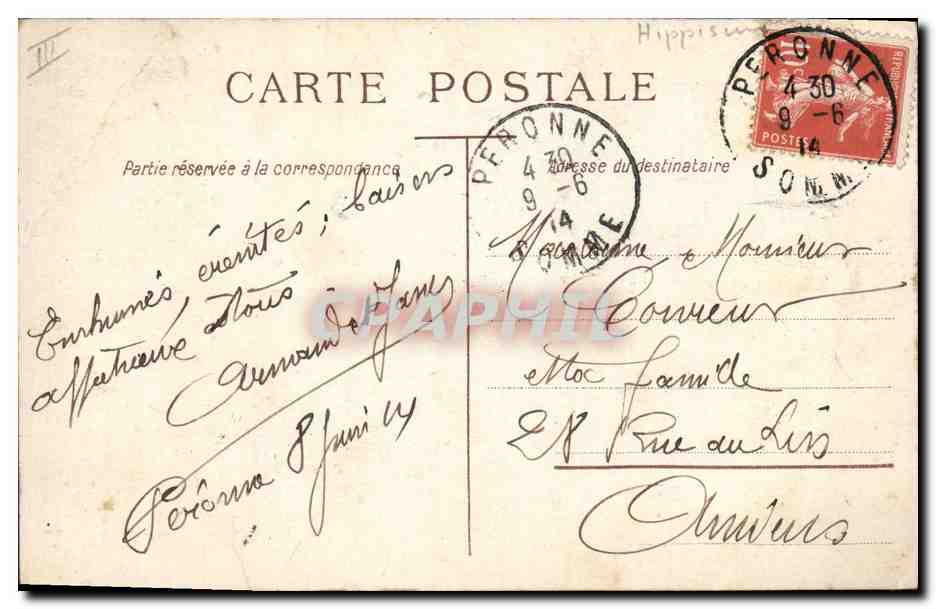 III
Hippisme
CARTE POSTALE
PERONNE
4 30
9 -6
14
SOMME
PERONNE
4 30
9 -6
14
SOMME
10
POSTES
Partie réservée à la correspondance
Adresse du destinataire
Enrhumés, éreintés; baisers
affectueux à tous
Péronne 8 Juin 14
CPARPHIL
Madame & Monsieur
et
famille
28 Rue du Lin
Amiens